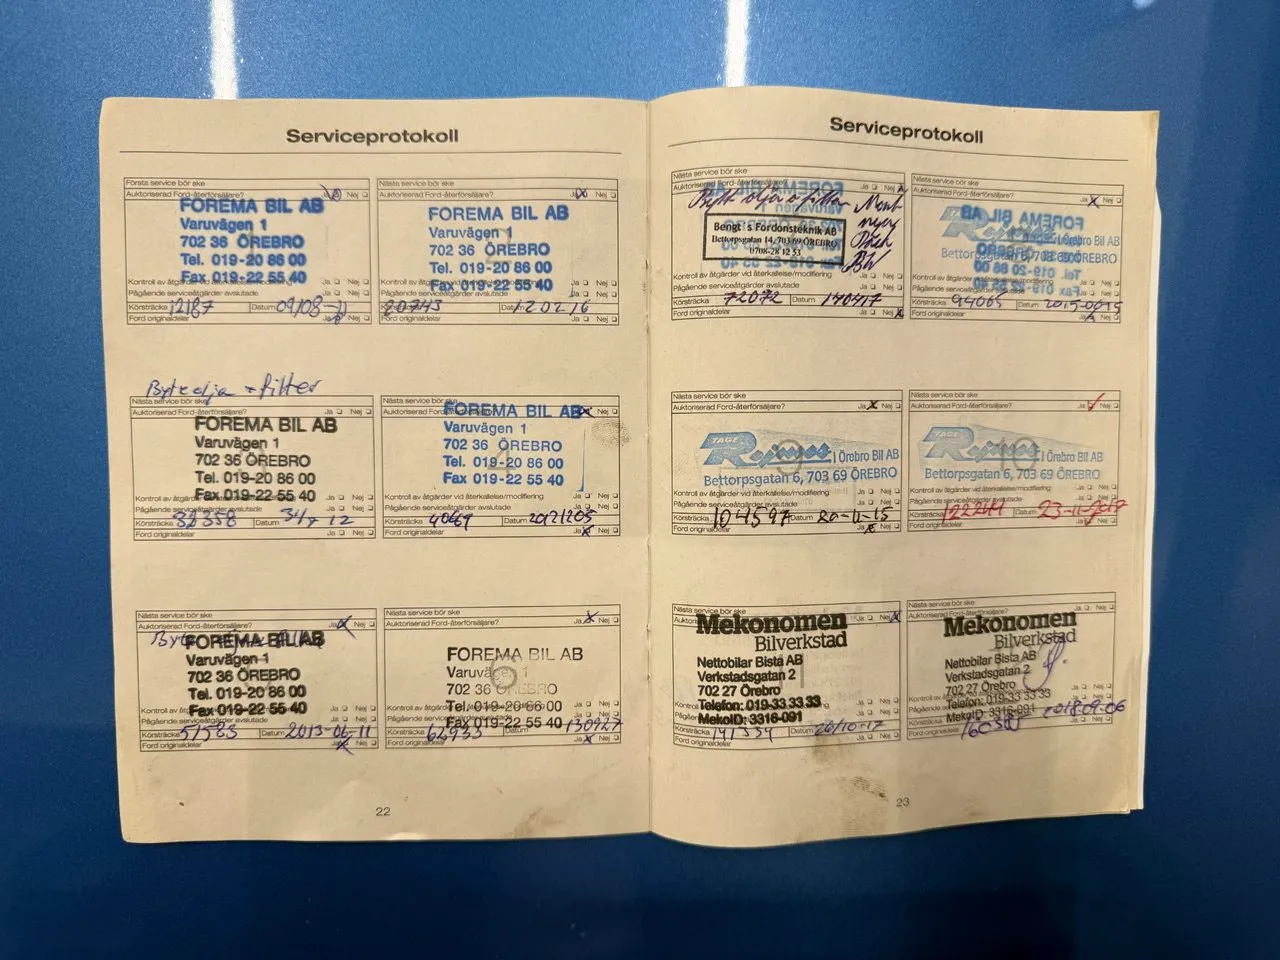 Serviceprotokoll
Första service bör ske
Auktoriserad Ford-återförsäljare? Ja Nej
FOREMA BIL AB
Varuvägen 1
702 36 ÖREBRO
Tel. 019-20 86 00
Fax 019-22 55 40
Kontroll av åtgärder vid återkallelse/modifiering
Pågående serviceåtgärder avslutade
Körsträcka 12187 Datum 09/08-11
Ford originaldelar Ja Nej
Nästa service bör ske
Auktoriserad Ford-återförsäljare? Ja Nej
FOREMA BIL AB
Varuvägen 1
702 36 ÖREBRO
Tel. 019-20 86 00
Fax 019-22 55 40
Kontroll av åtgärder vid återkallelse/modifiering
Pågående serviceåtgärder avslutade
Körsträcka 20743 Datum 120216
Ford originaldelar Ja Nej
Byte olja + filter
Nästa service bör ske
Auktoriserad Ford-återförsäljare? Ja Nej
FOREMA BIL AB
Varuvägen 1
702 36 ÖREBRO
Tel. 019-20 86 00
Fax 019-22 55 40
Kontroll av åtgärder vid återkallelse/modifiering Ja Nej
Pågående serviceåtgärder avslutade Ja Nej
Körsträcka 32358 Datum 31/7 12
Ford originaldelar Ja Nej
Nästa service bör ske
Auktoriserad Ford-återförsäljare? Ja Nej
FOREMA BIL AB
Varuvägen 1
702 36 ÖREBRO
Tel. 019-20 86 00
Fax 019-22 55 40
4
Kontroll av åtgärder vid återkallelse/modifiering Ja Nej
Pågående serviceåtgärder avslutade Ja Nej
Körsträcka 40667 Datum 20121205
Ford originaldelar Ja Nej
Nästa service bör ske
Auktoriserad Ford-återförsäljare? Ja Nej
FOREMA BIL AB
Varuvägen 1
702 36 ÖREBRO
Tel. 019-20 86 00
Fax 019-22 55 40
Pågående serviceåtgärder avslutade Ja Nej
Körsträcka 51585 Datum 2013-06-11
Ford originaldelar Ja Nej
Nästa service bör ske
Auktoriserad Ford-återförsäljare? Ja Nej
FOREMA BIL AB
Varuvägen 1
702 36 ÖREBRO
Tel. 019-20 86 00
Fax 019-22 55 40
6
Pågående serviceåtgärder avslutade
Körsträcka 62933 Datum 130927
Ford originaldelar Ja Nej
22
Serviceprotokoll
Nästa service bör ske
Auktoriserad Ford-återförsäljare? Ja Nej
Bytt olja o filter
Bengt´s Fordonsteknik AB
Bettorpsgatan 14, 703 69 ÖREBRO
0708-28 12 53
Kontroll av åtgärder vid återkallelse/modifiering
Pågående serviceåtgärder avslutade Ja Nej
Körsträcka 72072 Datum 140417
Ford originaldelar Ja Nej
Nästa service bör ske
Auktoriserad Ford-återförsäljare? Ja Nej
i Örebro Bil AB
Bettorpsgatan 6, 703 69 ÖREBRO
Kontroll av åtgärder vid återkallelse/modifiering
Pågående serviceåtgärder avslutade
Körsträcka 94065 Datum
Ford originaldelar Ja Nej
Nästa service bör ske
Auktoriserad Ford-återförsäljare? Ja Nej
TAGE Rejmes i Örebro Bil AB
Bettorpsgatan 6, 703 69 ÖREBRO
9
Kontroll av åtgärder vid återkallelse/modifiering Ja Nej
Pågående serviceåtgärder avslutade Ja Nej
Körsträcka 104597 Datum 20-11-15
Ford originaldelar Ja Nej
Nästa service bör ske
Auktoriserad Ford-återförsäljare? Ja Nej
TAGE Rejmes i Örebro Bil AB
Bettorpsgatan 6, 703 69 ÖREBRO
10
Kontroll av åtgärder vid återkallelse/modifiering Ja Nej
Pågående serviceåtgärder avslutade Ja Nej
Körsträcka Datum
Ford originaldelar Ja Nej
Nästa service bör ske
Mekonomen
Bilverkstad
Nettobilar Bista AB
Verkstadsgatan 2
702 27 Örebro
Telefon: 019-33 33 33
MekoID: 3316-091
11
Körsträcka 141334 Datum 26/10-17
Ford originaldelar Ja Nej
Nästa service bör ske
Mekonomen
Bilverkstad
Nettobilar Bista AB
Verkstadsgatan 2
702 27 Örebro
Telefon: 019-33 33 33
MekoID: 3316-091
Körsträcka 2018.09.06
Ford originaldelar Ja Nej
23